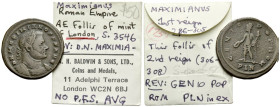 Maximianus
Roman Empire
AE Follis of mint
London. S. 3546
V: D.N. MAXIMIA-
H. BALDWIN & SONS, LTD.,
Coins and Medals,
11 Adelphi Terrace
London WC2N 6BJ
NO P.F.S. AVG
MAXIMIANUS
1st reign
286-305
This follis of
2nd reign (306-
308)
REV: GENIO POP
ROM